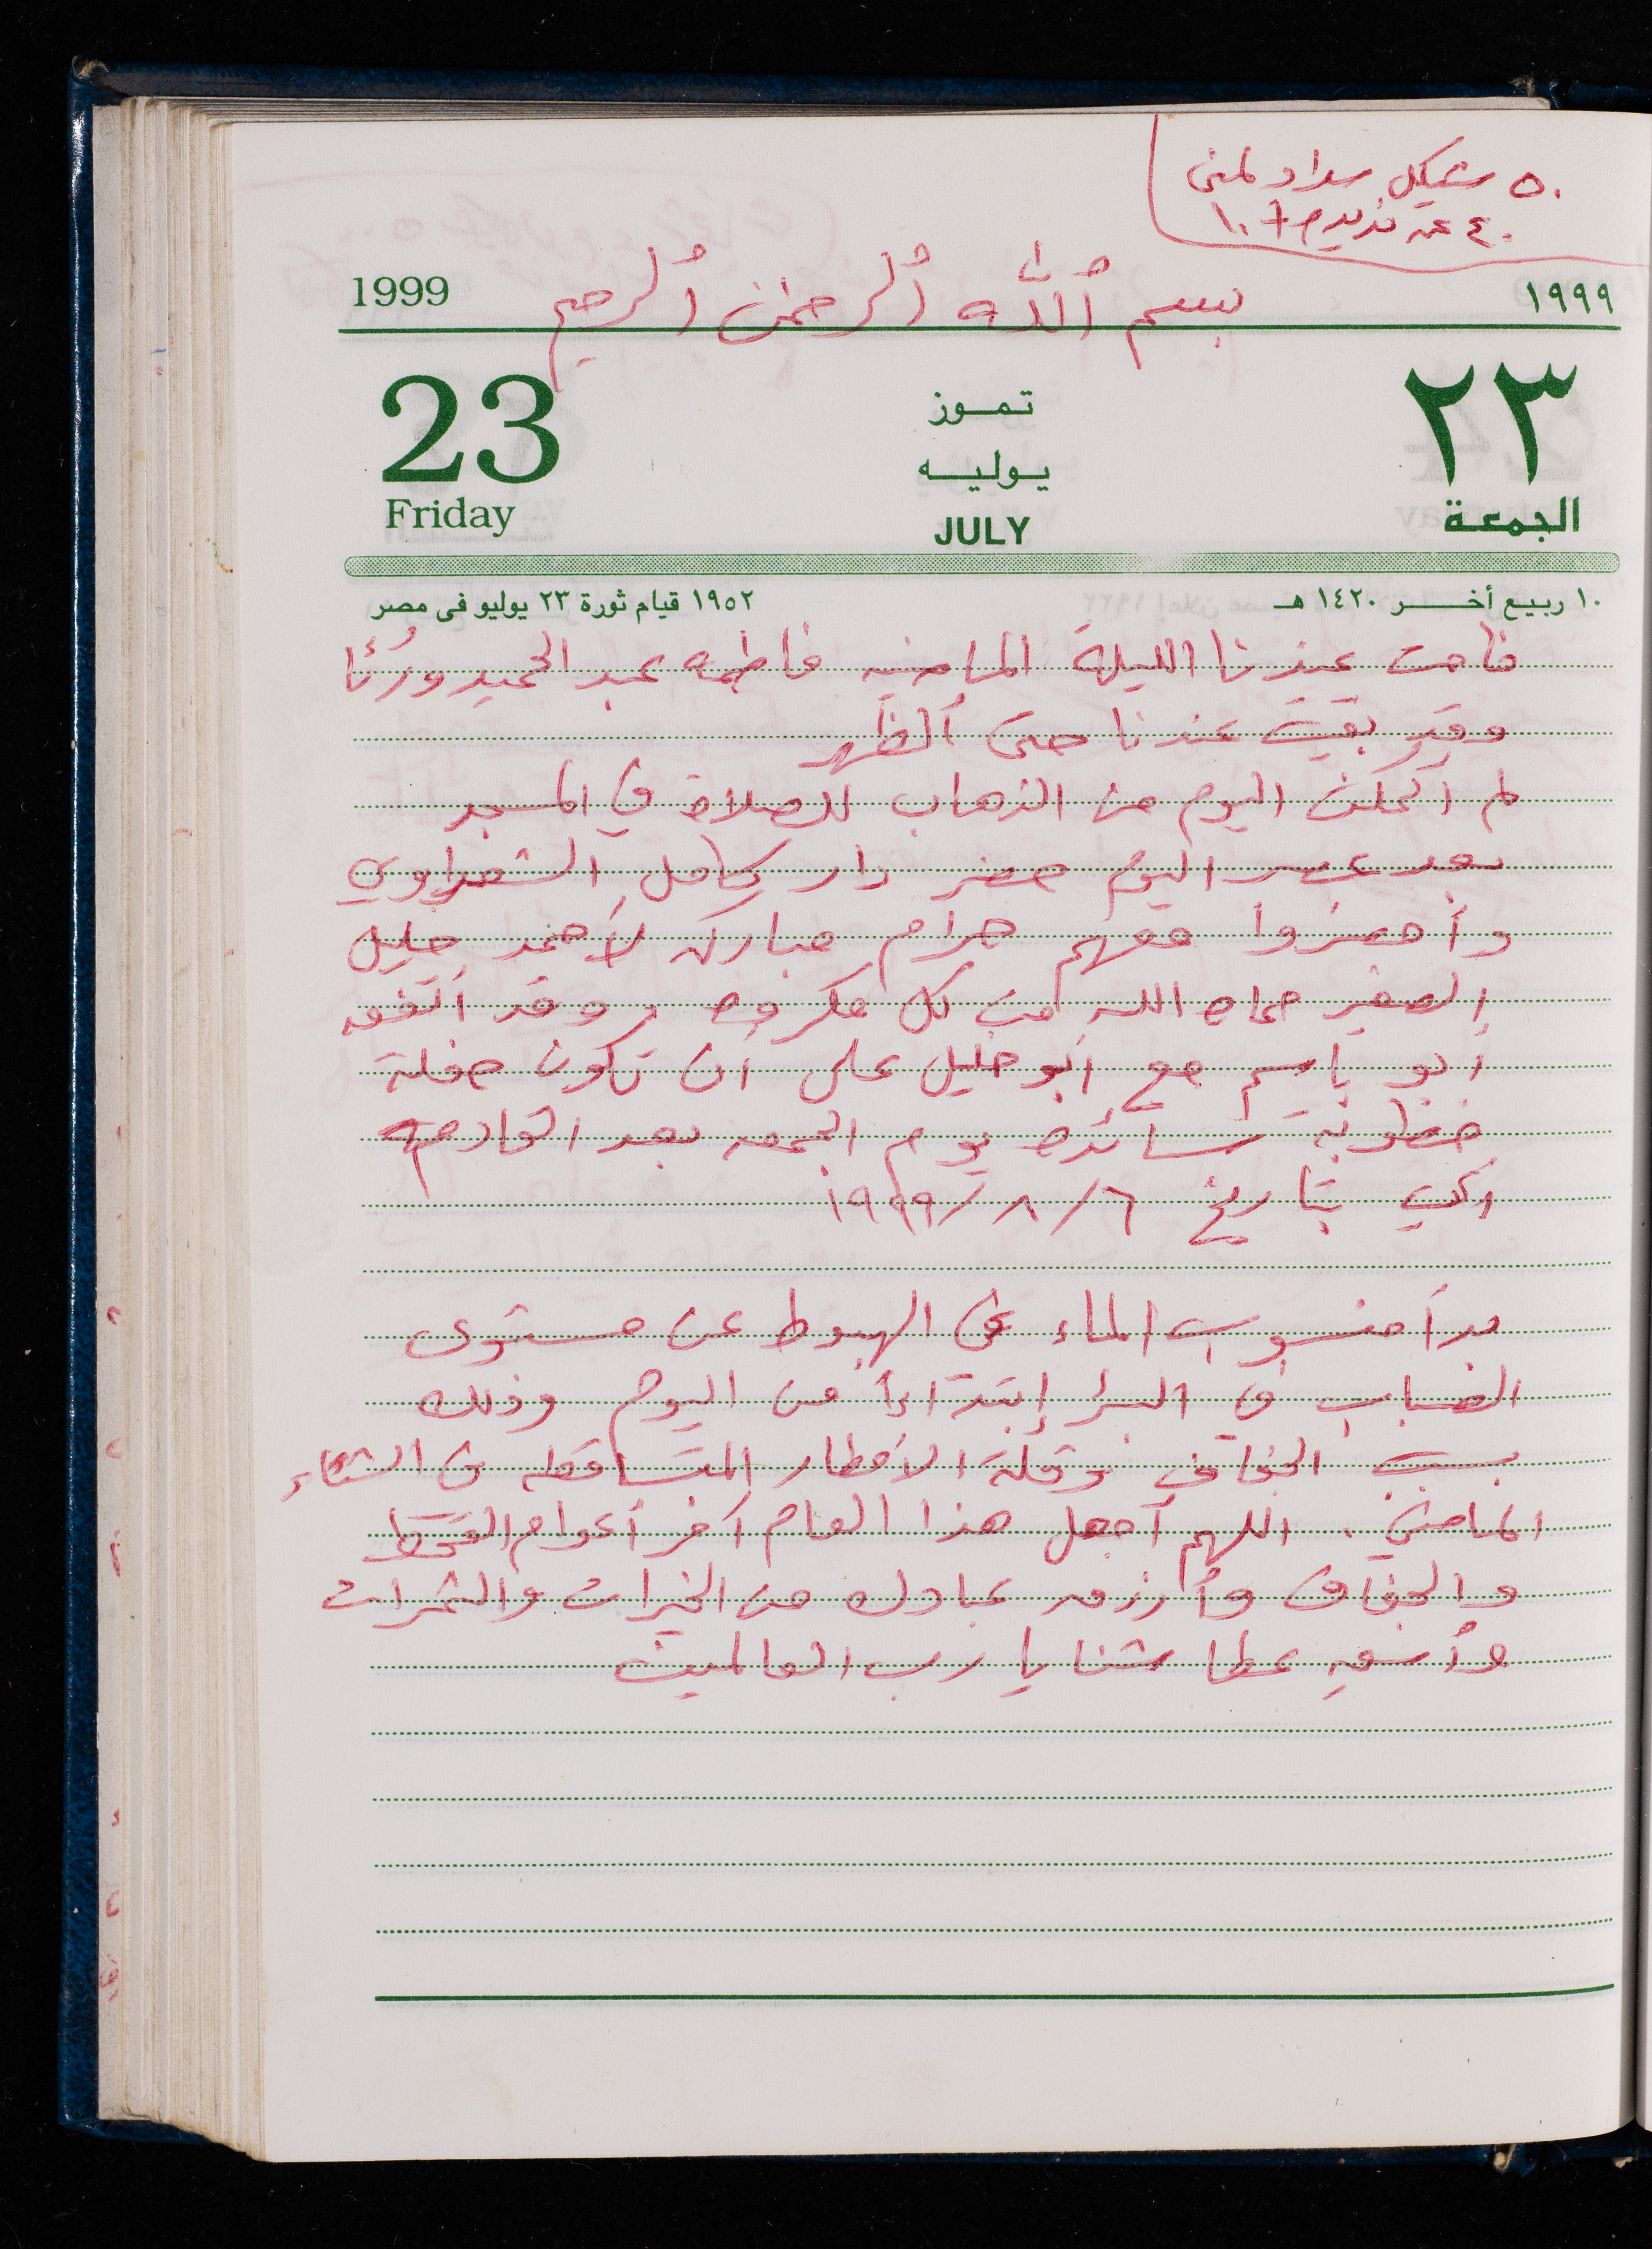 ٥٠ شيكل سداد لمنى
٤٠ عن
١٩٩٩ بسم الله الرحمن الرحيم 1999
٢٣ تموز 23
يوليه
الجمعة JULY Friday
١٠ ربيع أخر ١٤٢٠ هـ ١٩٥٢ قيام ثورة ٢٣ يوليو فى مصر
نامت عندنا الليلة الماضيه فاطمه عبد الحميد ورُبا
وقد بقيت عندنا حتى الظهر
لم أتمكن اليوم من الذهاب للصلاة في المسجد
بعد عصر اليوم حضر دار كامل الشعراوي
وأحضروا معهم حرام مبارك لأحمد خليل
الصغير حماه الله من كل مكروه وقد اتفق
أبو باسم مع أبو خليل على أن تكون حفلة
خطوبة سائده يوم الجمعه بعد القادمه
أي بتاريخ ٦/٨/١٩٩٩
بدأ منسوب الماء في الهبوط عن مستوى
الضباب في البئر إبتداءاً من اليوم وذلك
بسبب الجفاف وقلة الأمطار المتساقطه في الشتاء
الماضي . اللهم أجعل هذا العام آخر أعوام القحط
والجفاف وأرزق عبادك من الخيرات والثمرات
وأسقِ عطاشنا يا رب العالمين